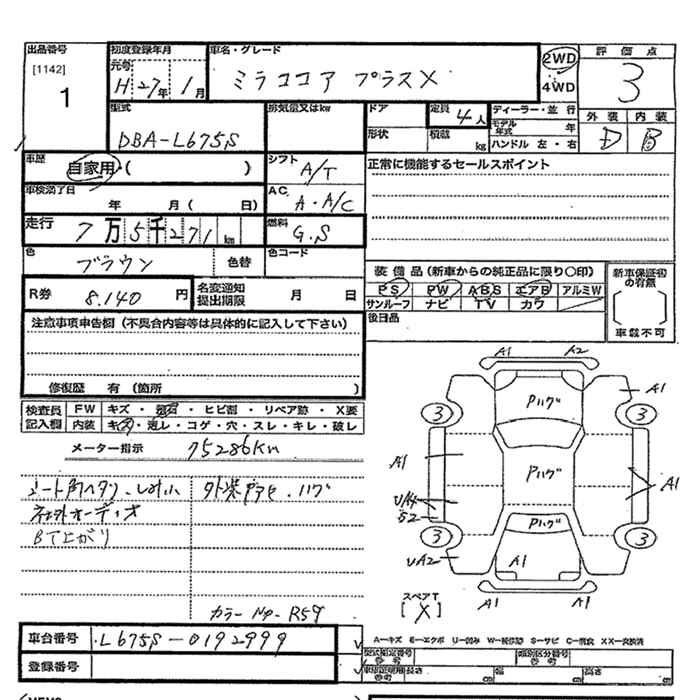 出品番号 [1142] 1
初度登録年月 元号 H 27年 1月
車名・グレード ミラココア プラスX
2WD 4WD
評価点 3
外装 内装 D B
型式 DBA-L675S
排気量又はkw
ドア 形状
定員 4人 積載 kg
ディーラー・並行
モデル年式 年
ハンドル 左・右
車歴 自家用・( )
シフト A/T
正常に機能するセールスポイント
車検満了日 年 月( 日)
AC A・A/C
走行 7万5千271km
燃料 G.S
色 ブラウン 色替
色コード
装備品(新車からの純正品に限り〇印)
PS PW ABS エアB アルミW
サンルーフ ナビ TV カワ
新車保証初の有無 [ ] 車載不可
R券 8.140円
名変通知提出期限 月 日
後日品
注意事項申告欄(不具合内容等は具体的に記入して下さい)
修復歴 有(箇所 )
検査員 FW キズ・飛石・ヒビ割・リペア跡・X要
記入欄 内装 キズ・汚レ・コゲ・穴・スレ・キレ・破レ
メーター指示 75286Km
シート角ヘタリ、シミ小 外装デアセ、ハゲ
社外オーディオ
BT上がり
カラーNo.R59
A1 A2
A1
3 3
Pハゲ
A1 Pハゲ A1
UA4
S2
3 Pハゲ 3
UA2 A1
A1 A1
スペアT [X]
車台番号 L675S-0192999
登録番号
A―キズ E―エクボ U―凹み W―補修跡 S―サビ C―腐食 XX―交換済
型式指定番号 参考 類別区分番号 参考
長さ 幅 高さ